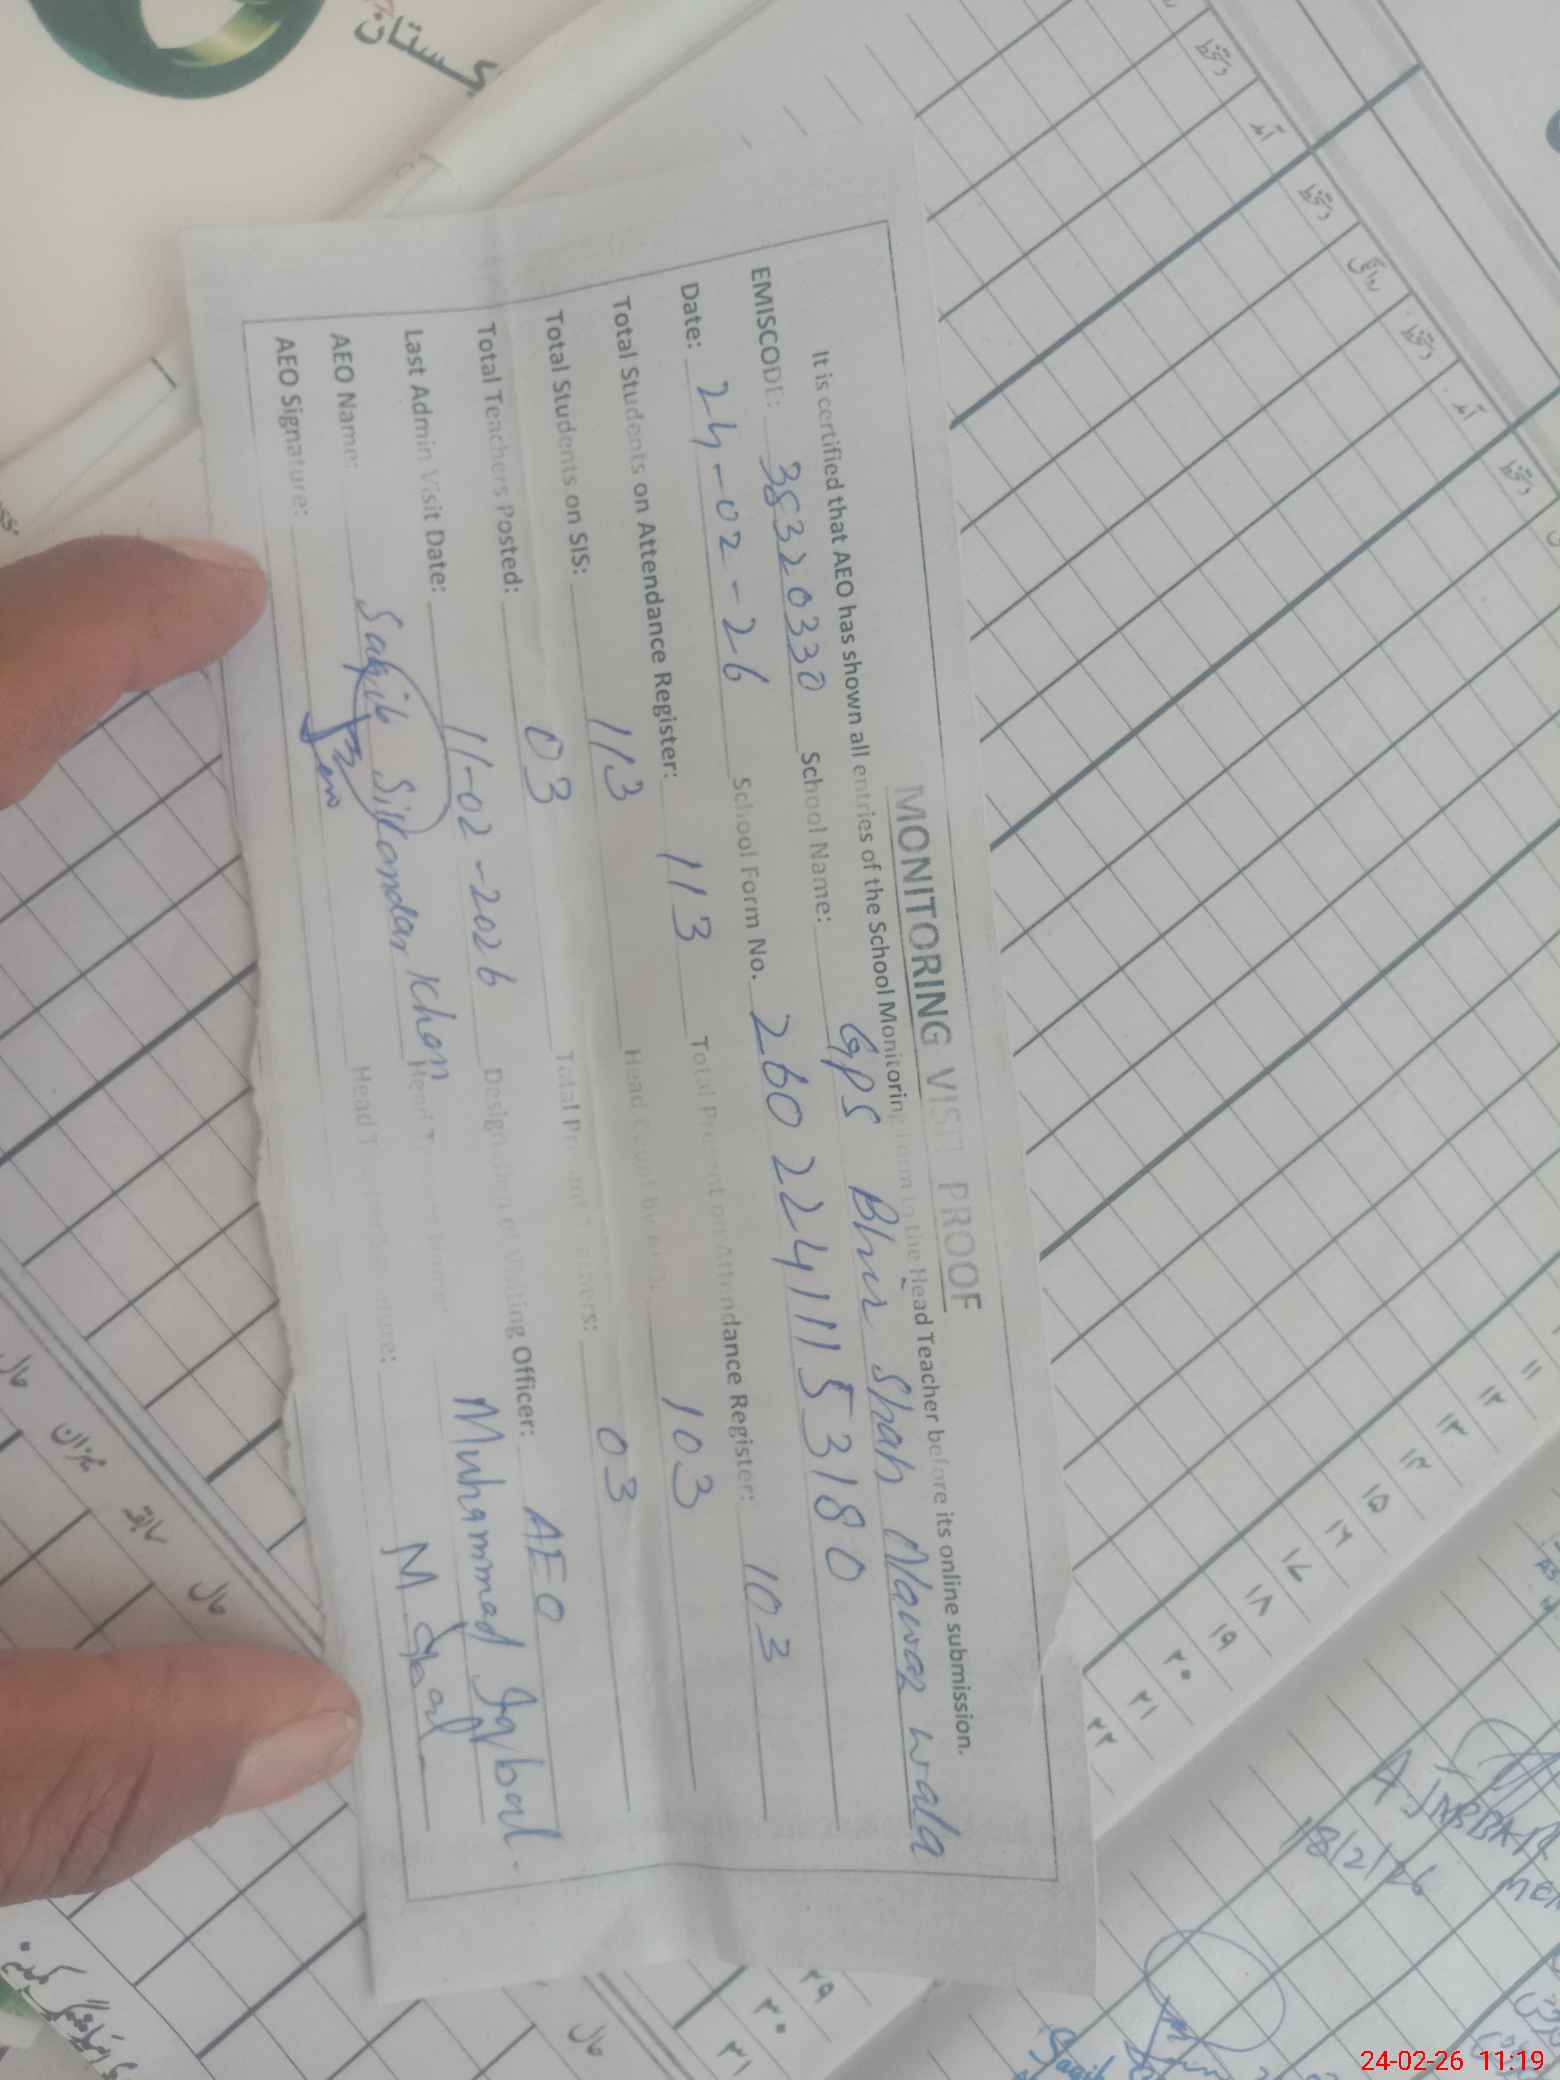 MONITORING VISIT PROOF
It is certified that AEO has shown all entries of the School Monitoring Form to the Head Teacher before its online submission.
EMISCODE: 38320330 School Name: GPS Bhir Shah Nawaz wala
Date: 24-02-26 School Form No. 26022411153180
Total Students on Attendance Register: 113 Total Present on Attendance Register: 103
Total Students on SIS: 113 Head Count by AEO: 103
Total Teachers Posted: 03 Total Present Teachers: 03
Last Admin Visit Date: 11-02-2026 Designation of Visiting Officer: AEO
AEO Name: Saqib Sikandar Khan Head Teacher Name: Muhammad Iqbal
AEO Signature: Head Teacher Signature: M Iqbal
دستخط
آمد
دستخط
روانگی
دستخط
آمد
دستخط
۱۱
۱۲
۱۳
۱۴
۱۵
۱۶
۱۷
۱۸
۱۹
۲۰
۲۱
۲۲
۲۹
۳۰
۳۱
حال
میزان
سابقہ
حال
حال
18/2/26
Saqib
24-02-26 11:19